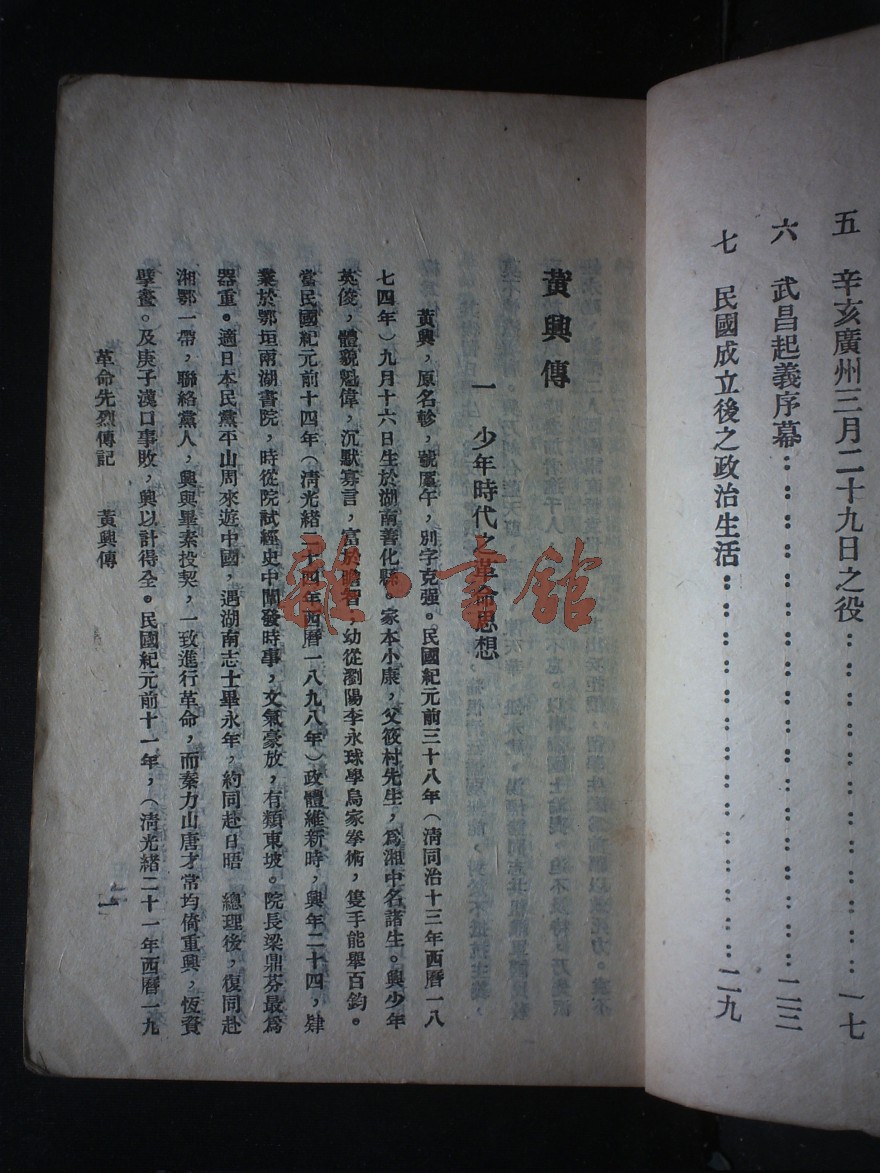 五　辛亥廣州三月二十九日之役：：：：：：：：：：一七
六　武昌起義序幕：：：：：：：：：：：：：：二三
七　民國成立後之政治生活：：：：：：：：：：：二九
黃興傳
一　少年時代之革命思想
黃興，原名軫，號厪午，別字克强。民國紀元前三十八年（清同治十三年西曆一八
七四年）九月十六日生於湖南善化縣。家本小康，父筱村先生，爲湘中名諸生。興少年
英俊，體貌魁偉，沉默寡言，富於膽智，幼從瀏陽李永球學烏家拳術，隻手能舉百鈞。
當民國紀元前十四年（清光緒二十四年西曆一八九八年）政體維新時，興年二十四，肄
業於鄂垣兩湖書院，時從院試經史中闡發時事，文氣豪放，有類東坡。院長梁鼎芬最爲
器重。適日本民黨平山周來遊中國，遇湖南志士畢永年，約同赴日晤　總理後，復同赴
湘鄂一帶，聯絡黨人，興與畢素投契，一致進行革命，而秦力山唐才常均倚重興，恆資
擘畫。及庚子漢口事敗，興以計得全。民國紀元前十一年，（清光緒二十一年西曆一九
革命先烈傳記　黃興傳
一
雜·書館